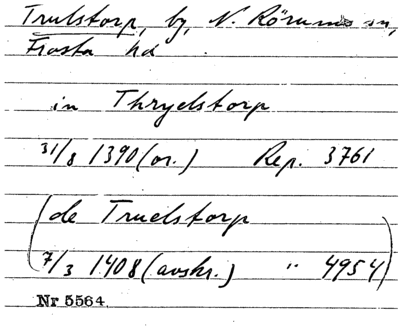 Trulstorp, by, N. Rörums sn,
Frosta hd
in Thryelstorp
31/8 1390 (or.) Rep. 3761
(de Truelstorp
7/3 1408 (avskr.) " 4954)
Nr 5564